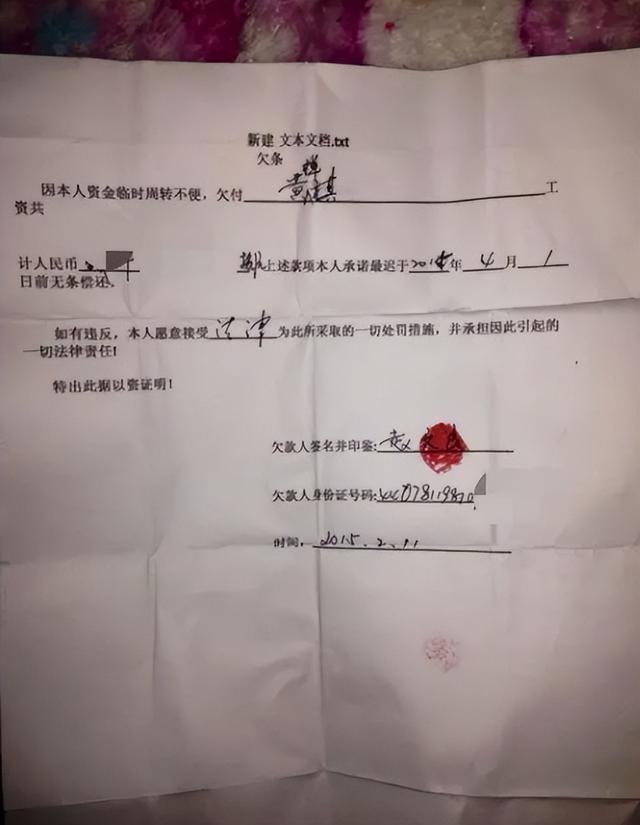 新建 文本文档.txt
欠条
因本人资金临时周转不便，欠付 工
资共
计人民币 上述款项本人承诺最迟于 2015 年 4 月 1
日前无条偿还。
如有违反，本人愿意接受 法律 为此所采取的一切处罚措施，并承担因此引起的
一切法律责任!
特出此据以资证明!
欠款人签名并印鉴:
欠款人身份证号码:
时间， 2015.2.11